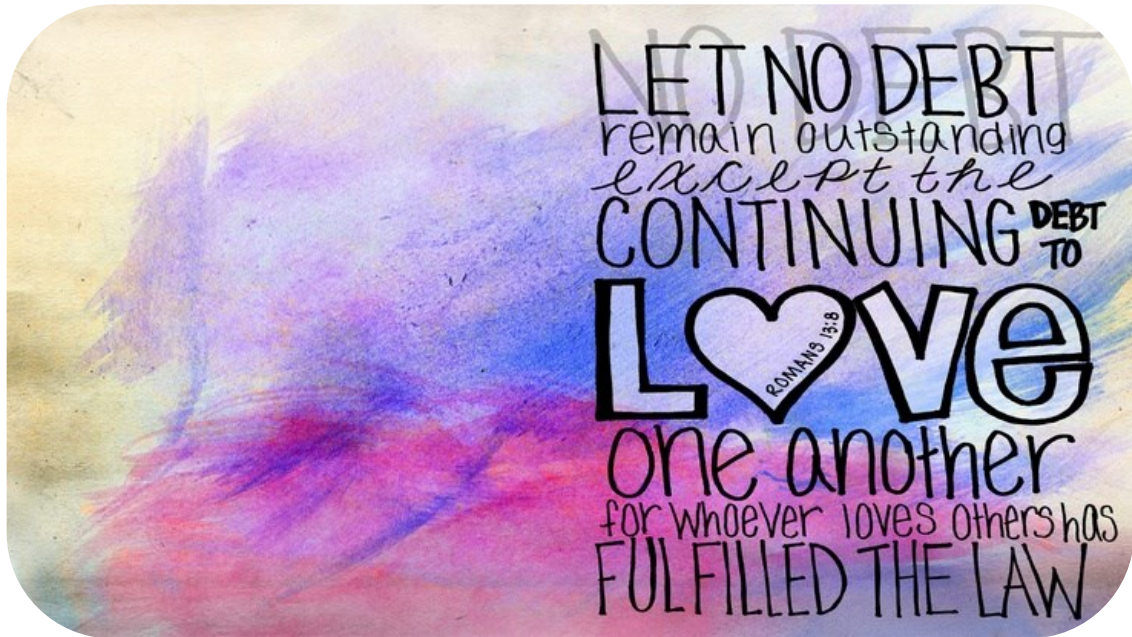 LET NO DEBT
remain outstanding
except the
CONTINUING DEBT TO
LOVE
ROMANS 13:8
one another
for whoever loves others has
FULFILLED THE LAW
NO DEBT